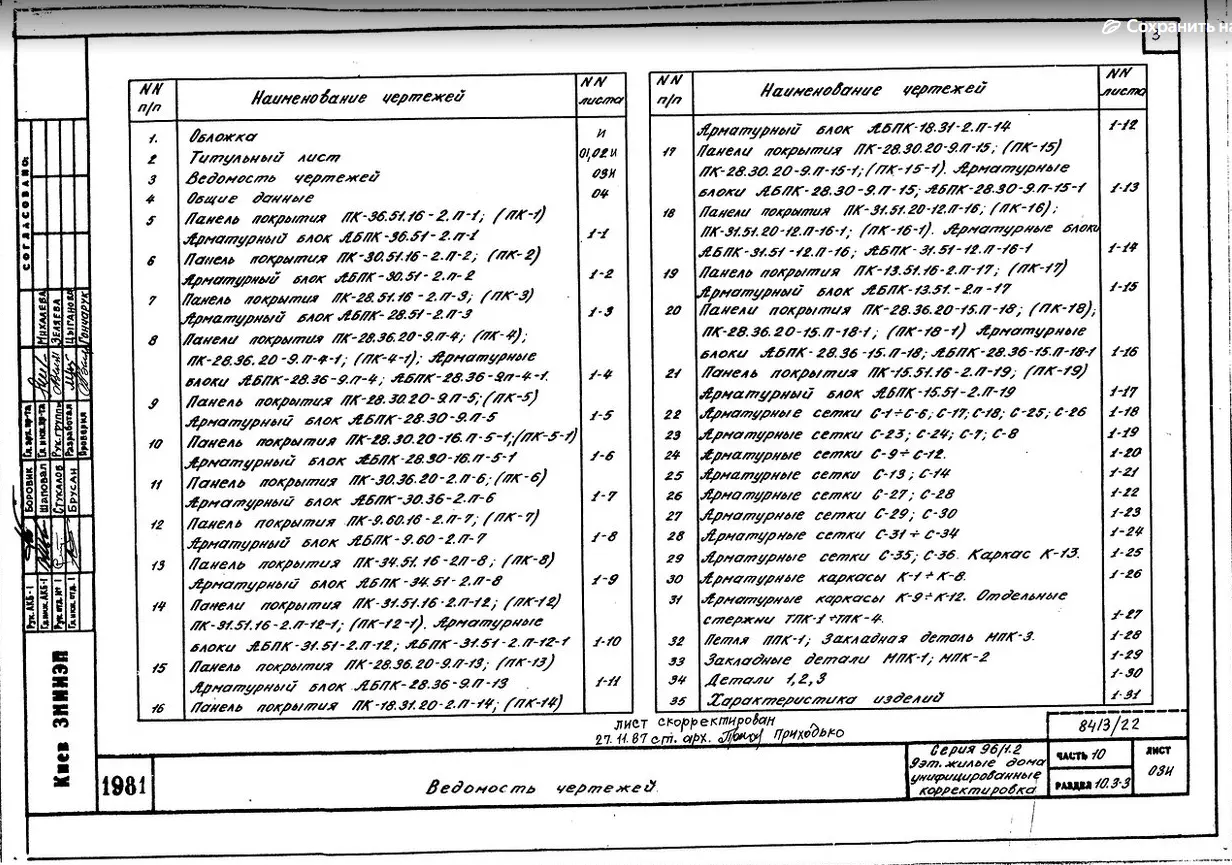 Сохранить на
3
NN п/п
Наименование чертежей
NN листа
1. Обложка И
2 Титульный лист 01,02И
3 Ведомость чертежей 03И
4 Общие данные 04
5 Панель покрытия ПК-36.51.16-2.П-1; (ПК-1)
Арматурный блок АБПК-36.51-2.П-1 1-1
6 Панель покрытия ПК-30.51.16-2.П-2; (ПК-2)
Арматурный блок АБПК-30.51-2.П-2 1-2
7 Панель покрытия ПК-28.51.16-2.П-3; (ПК-3)
Арматурный блок АБПК-28.51-2.П-3 1-3
8 Панели покрытия ПК-28.36.20-9.П-4; (ПК-4);
ПК-28.36.20-9.П-4-1; (ПК-4-1); Арматурные
блоки АБПК-28.36-9.П-4; АБПК-28.36-9п-4-1. 1-4
9 Панель покрытия ПК-28.30.20-9.П-5; (ПК-5)
Арматурный блок АБПК-28.30-9.П-5 1-5
10 Панель покрытия ПК-28.30.20-16.П-5-1; (ПК-5-1)
Арматурный блок АБПК-28.30-16.П-5-1 1-6
11 Панель покрытия ПК-30.36.20-2.П-6; (ПК-6)
Арматурный блок АБПК-30.36-2.П-6 1-7
12 Панель покрытия ПК-9.60.16-2.П-7; (ПК-7)
Арматурный блок АБПК-9.60-2.П-7 1-8
13 Панель покрытия ПК-34.51.16-2П-8; (ПК-8)
Арматурный блок АБПК-34.51-2.П-8 1-9
14 Панели покрытия ПК-31.51.16-2.П-12; (ПК-12)
ПК-31.51.16-2.П-12-1; (ПК-12-1). Арматурные
блоки АБПК-31.51-2.П-12; АБПК-31.51-2.П-12-1 1-10
15 Панель покрытия ПК-28.36.20-9.П-13; (ПК-13)
Арматурный блок АБПК-28.36-9.П-13 1-11
16 Панель покрытия ПК-18.31.20-2.П-14; (ПК-14)
NN п/п
Наименование чертежей
NN листа
Арматурный блок АБПК-18.31-2.П-14 1-12
17 Панели покрытия ПК-28.30.20-9.П-15; (ПК-15)
ПК-28.30.20-9.П-15-1; (ПК-15-1). Арматурные
блоки АБПК-28.30-9.П-15; АБПК-28.30-9.П-15-1 1-13
18 Панели покрытия ПК-31.51.20-12.П-16; (ПК-16);
ПК-31.51.20-12.П-16-1; (ПК-16-1). Арматурные блоки
АБПК-31.51-12.П-16; АБПК-31.51-12.П-16-1 1-14
19 Панель покрытия ПК-13.51.16-2.П-17; (ПК-17)
Арматурный блок АБПК-13.51.-2п-17 1-15
20 Панели покрытия ПК-28.36.20-15.П-18; (ПК-18);
ПК-28.36.20-15.П-18-1; (ПК-18-1) Арматурные
блоки АБПК-28.36-15.П-18; АБПК-28.36-15.П-18-1 1-16
21 Панель покрытия ПК-15.51.16-2.П-19; (ПК-19)
Арматурный блок АБПК-15.51-2.П-19 1-17
22 Арматурные сетки С-1÷С-6; С-17; С-18; С-25; С-26 1-18
23 Арматурные сетки С-23; С-24; С-7; С-8 1-19
24 Арматурные сетки С-9÷С-12. 1-20
25 Арматурные сетки С-13; С-14 1-21
26 Арматурные сетки С-27; С-28 1-22
27 Арматурные сетки С-29; С-30 1-23
28 Арматурные сетки С-31÷С-34 1-24
29 Арматурные сетки С-35; С-36. Каркас К-13. 1-25
30 Арматурные каркасы К-1÷К-8. 1-26
31 Арматурные каркасы К-9÷К-12. Отдельные
стержни ТПК-1÷ТПК-4. 1-27
32 Петля ППК-1; Закладная деталь МПК-3. 1-28
33 Закладные детали МПК-1; МПК-2 1-29
34 Детали 1,2,3 1-30
35 Характеристика изделий 1-31
лист скорректирован
27.11.87 ст. арх. Приходько
84/3/22
СОГЛАСОВАНО:
Рук. АКБ-1 Боровик Гл. арх. пр-та Михалева
Гл. инж. АКБ-1 Шаповал Гл. инж. пр-та Беляева
Рук. отд. №1 Стукалов Рук. группы Цыганова
Гл. инж. отд. 1 Брусан Разработал
Проверил Гончарук
Киев ЗНИИЭП
1981
Ведомость чертежей
Серия 96/1.2
9эт. жилые дома
унифицированные
корректировка
ЧАСТЬ 10
РАЗДЕЛ 10.3-3
ЛИСТ
03И